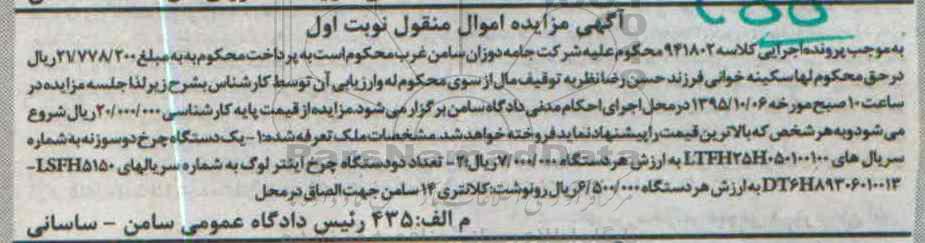 آگهی مزایده اموال منقول نوبت اول
به موجب پرونده اجرایی کلاسه ۹۴۱۸۰۲ محکوم علیه شرکت جامه دوزان سامن غرب محکوم است به پرداخت محکوم به به مبلغ ۲۷۷۷۸/۲۰۰ ریال
در حق محکوم لها سکینه خوانی فرزند حسن رضا نظر به توقیف مال از سوی محکوم له و ارزیابی آن توسط کارشناس بشرح زیر لذا جلسه مزایده در
ساعت ۱۰ صبح مورخه ۱۳۹۵/۱۰/۰۶ در محل اجرای احکام مدنی دادگاه سامن برگزار می شود. مزایده از قیمت پایه کارشناسی ۲۰/۰۰۰/۰۰۰ ریال شروع
می شود و به هر شخص که بالاترین قیمت را پیشنهاد نماید فروخته خواهد شد. مشخصات ملک تعرفه شده: ۱- یک دستگاه چرخ دو سوزنه به شماره
سریال های LTFH۲۵H۰۵۰۱۰۰۱۰۰ به ارزش هر دستگاه ۷/۰۰۰/۰۰۰ ریال ۲- تعداد دو دستگاه چرخ اینتر لوگ به شماره سریالهای LSFH۵۱۵۰-
DT۶H۸۹۳۰۶۰۱۰۰۱۳ به ارزش هر دستگاه ۶/۵۰۰/۰۰۰ ریال رونوشت: کلانتری ۱۴ سامن جهت الصاق در محل
م الف: ۴۳۵ رئیس دادگاه عمومی سامن - ساسانی